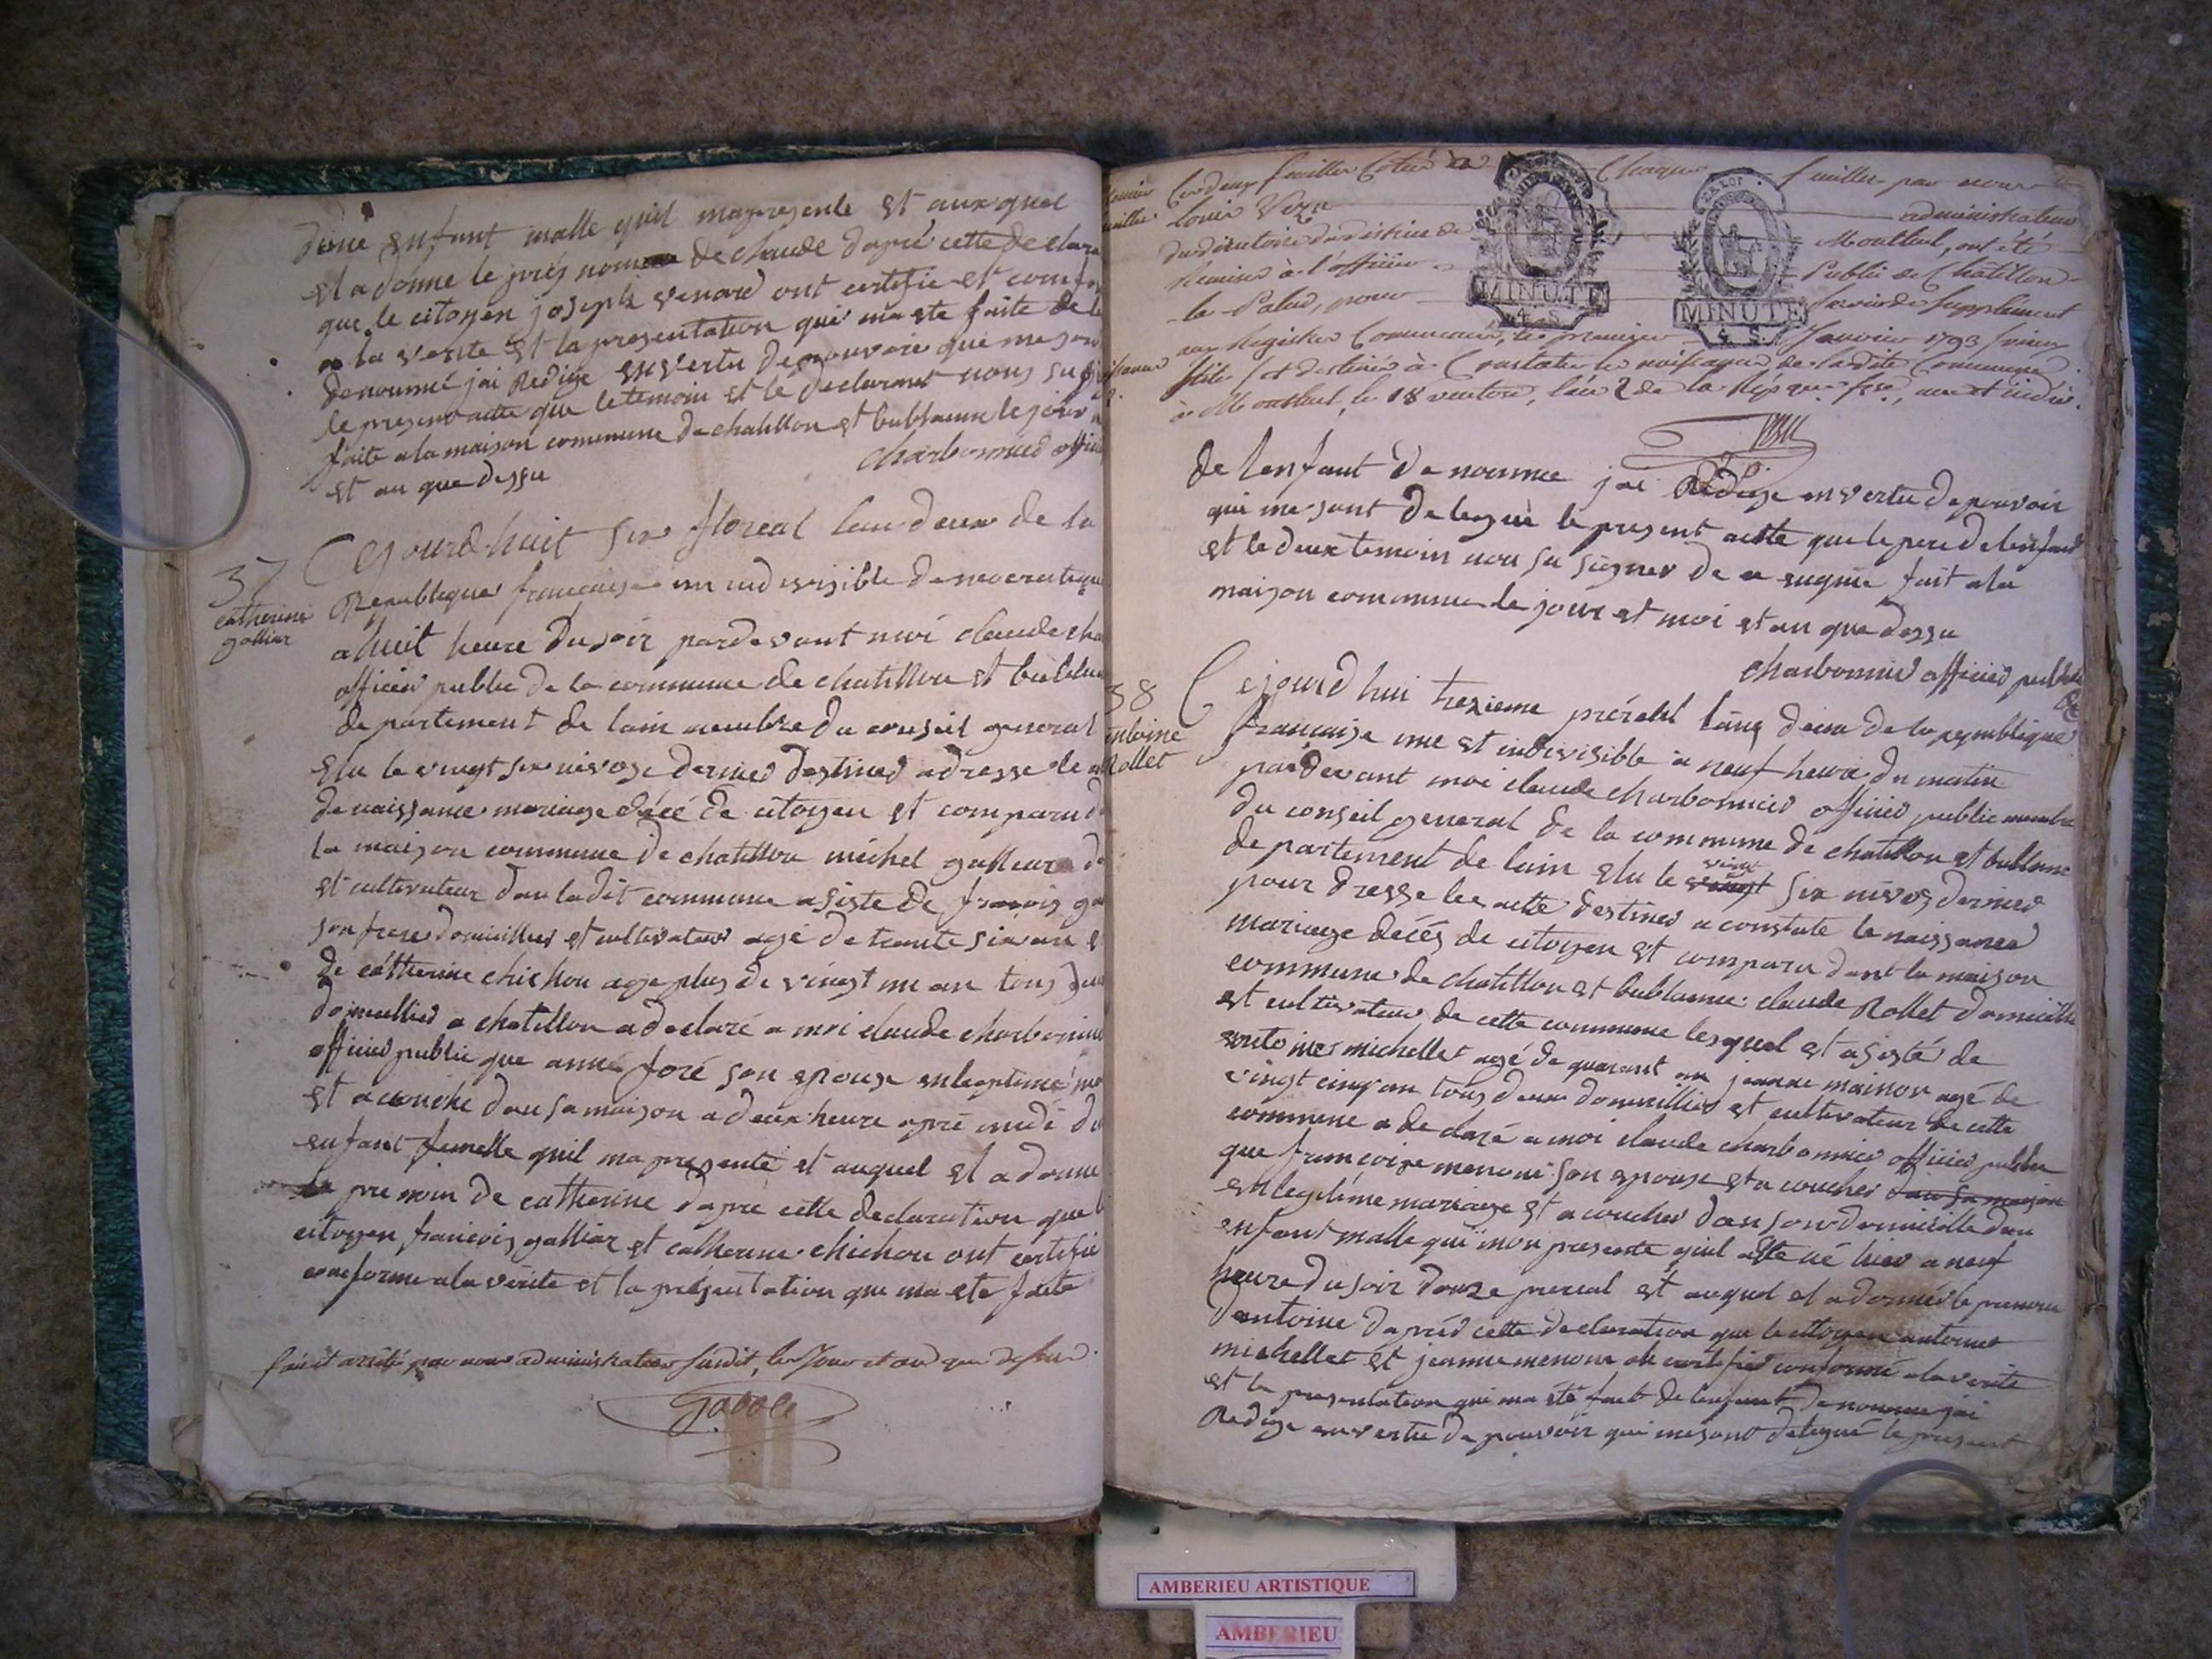 dune enfant malle quil mapresente et auxquel
el a donne le prés nom de claude daprés cette declara
que le citoyen joseph venard ont certifie et confor
a la verite et la presentation qui ma ete faite de l
denommé jai Redige en vertu de pouvoire qui me son
le present acte que le temoin et le declarant nons su
faite a la maison commune de chatillon et bublanne le jour
est an que dessu charbonnied offici
37
catherine
galliar
Cejourdhuit six floreal lan deux de la
Republique française un indivisible democratique
a huit heure du soir pardevant moi claude cha
officier public de la commune de chatillon et bublan
departement de lain membre du conseil general
elu le vingt six nivose dernier destines adresse le a
de naissance mariage décé de citoyen est comparu d
la maison commune de chatillon michel galliar d
est cultivateur dans ladit commune asiste de françois ga
son frere domicillier et cultivateur agé de trante six an e
de catherine chichon age plus de vingt un an tous deu
domicillied a chatillon a declaré a moi claude charbonnie
officier public que anne foré son epouse en legetime m
est acouché dans sa maison a deux heure aprè midi du
enfant femelle quil ma presenté et auquel el a donne
le prenoin de catherine daprè cette declaration que l
citoyen françois galliar et catherine chichon ont certifié
conforme a la verite et la présentation que ma ete faite
fait et arêté par nous administrateur susdit, les Jour et an que dessus.
premier Ces deux feuilles Cotées Chaque feuilles par nous
feuilles Louis Vezu administrateur
du directoire du district de Montluel, ont été
Remises à l'officier Public de Chatillon
la Palud, pour Servir de Supplément
aux Registres Commencés, le premier Janvier 1793 (vieux
stile) et destinés à Constater les naissances de ladite Commune.
à Montluel, le 18 ventose, l'an 2 de la Rep que fse, une et indiv.
MINUTE
4. S.
MINUTE
4. S.
de lenfant denommee jai Redige en vertu de pouvoir
qui me sont delegué le present actte que le pere de lenfant
et le deux temoin non su signer de ce enquie fait a la
maison commune le jour et moi et an que dessu
charbonnied officied public
38
antoine
Rollet
Cejourdhui trezieme prérial lans deux de la republique
française une et indivisible a neuf heure du matin
pardevant moi claude charbonnier officied public membre
du conseil general de la commune de chatillon et bublanne
departement de lain elu le vingt six nivos dernied
pour dresse les actte destines a constate le naissance
mariage decés de citoyen est comparu dant la maison
commune de chatillon et bublanne claude Rollet domicillie
est cultivateur de cette commune lesquel est asisté de
antoines michellet agé de quarant an jeanne mainon agé de
vingt cinq an tous deux domicillied et cultivateur de cette
commune a declaré a moi claude charbonnier officied public
que françoise menoni son epouse est a coucher dans sa maison
en legitime mariage est a coucher dans son domicille dun
enfant malle qui mon presente quil a ete né hier a neuf
heure du soir douze prereal et auquel el a donner le prenom
dantoine daprés cette declaration que le citoyen antoines
michellet et jeanne menoni ont certified conforme a la verite
et la presentation qui ma été fait de lenfant denomme jai
Redige en vertu de pouvoir qui me sont delegué le present
AMBERIEU ARTISTIQUE
AMBERIEU